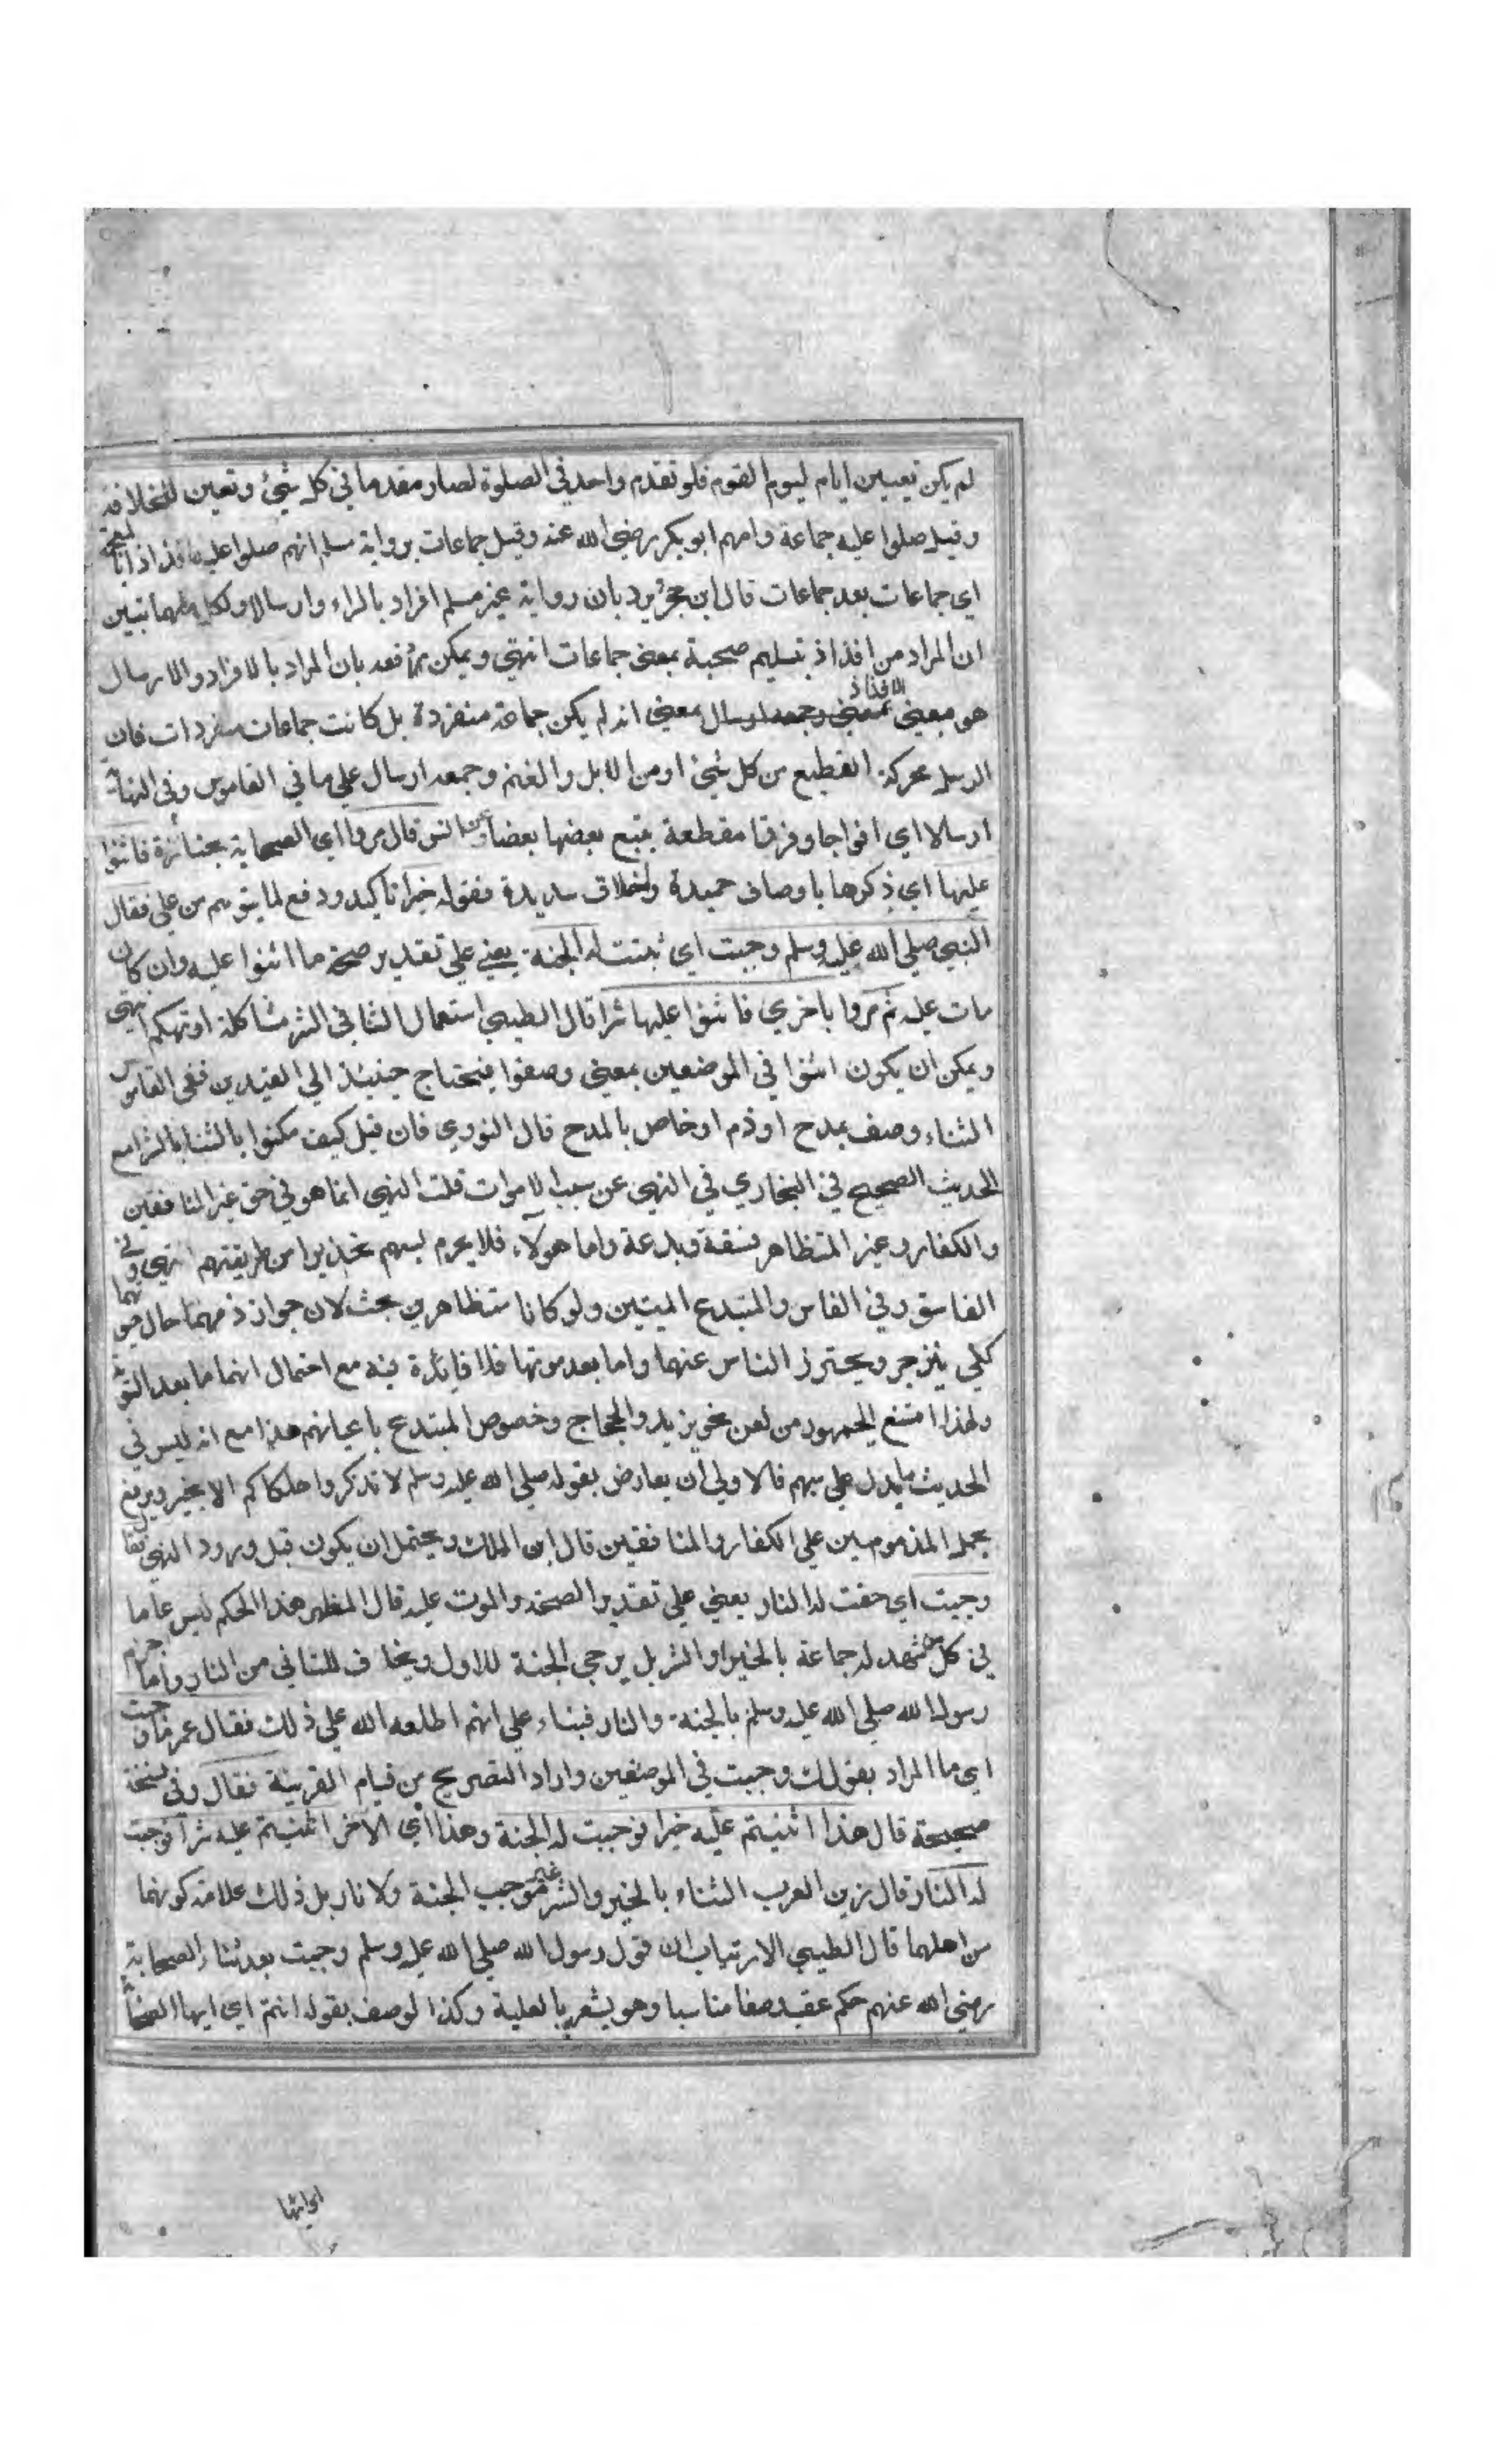 لم يكن تعيين امام ليوم القوم فلو تقدم واحد في الصلوة لصار مقدما في كل شيئ وتعين للخلافة
وقيل صلوا عليه جماعة وامهم ابو بكر رضي الله عنه وقيل جماعات برواية مسلم انهم صلوا عليه افذاذا
اي جماعات بعد جماعات قال ابن حجر يرد بان رواية غير مسلم افراد بالراء وارسالا وبكل منهما تبين
ان المراد من افذاذ بتسليم صحبة بمعنى جماعات انتهى ويمكن دفعه بان المراد بالافراد والارسال
هو بمعنى الافذاذ بمعنى انه لم يكن جماعة منفردة بل كانت جماعات منفردات فان
الرسل محركة القطيع من كل شيئ او من الابل والغنم وجمعه ارسال على ما في القاموس وفي النهاية
ارسالا اي افواجا وفرقا مقطعة يتبع بعضها بعضا وعن انس قال مروا اي الصحابة بجنازة فاثنوا
عليها اي ذكروها باوصاف حميدة واخلاق سديدة فقوله خيرا تاكيد ودفع لما يتوهم من على فقال
النبي صلى الله عليه وسلم وجبت اي ثبتت له الجنة يعني على تقدير صحة ما اثنوا عليه وان كان
مات عليه ثم مروا باخرى فاثنوا عليها شرا قال الطيبي استعمال الثنا في الشر مشاكلة او تهكم انتهى
ويمكن ان يكون اثنوا في الموضعين بمعنى وصفوا فيحتاج حينئذ الى القيدين ففي القاموس
الثناء وصف بمدح او ذم او خاص بالمدح قال النووي فان قيل كيف مكنوا بالثنا بالشر مع
الحديث الصحيح في البخاري في النهي عن سب الاموات قلت النهي انما هو في حق غير المنافقين
والكفار وغير المتظاهر فسقة وبدعة واما هولاء فلا يحرم لسبهم تحذيرا من طريقتهم انتهى وفي
الفاسق وفي الفاس والمتبدع الميتين ولو كانا متظاهرين بحث لان جواز ذمهما حال حيوتهما
كلي ينزجر ويحترز الناس عنهما واما بعد موتهما فلا فائدة فيه مع احتمال انهما ماتا بعد التوبة
ولهذا امتنع الجمهور من لعن نحو يزيد والحجاج وخصوص المبتدع باعيانهم هذا مع انه ليس في
الحديث ما يدل على سبهم فالاولى ان يعارض بقوله صلى الله عليه وسلم لا تذكروا هلكاكم الا بخير ويدفع
بحمل المذمومين على الكفار والمنافقين قال ابن الملك ويحتمل ان يكون قبل ورود النهي فقال
وجبت اي حقت له النار يعني على تقدير الصحة والموت عليه قال المظهر هذا الحكم ليس عاما
في كل من شهد له جماعة بالخير او الشر بل يرجى الجنة للاول ويخاف للثاني من النار واما جزم
رسول الله صلى الله عليه وسلم بالجنة والنار فبناء على انهم اطلعه الله على ذلك فقال عمر ما وجبت
اي ما المراد بقولك وجبت في الموضعين واراد التصريح من قيام القرينة فقال وفي نسخة
صحيحة قال هذا اثنيتم عليه خيرا فوجبت له الجنة وهذا اي الآخر اثنيتم عليه شرا فوجبت
له النار قال زين العرب الثناء بالخير والشر غير موجب الجنة ولا نار بل ذلك علامة كونهما
من اهلهما قال الطيبي الارتياب ان قول رسول الله صلى الله عليه وسلم وجبت بعد ثناء الصحابة
رضي الله عنهم حكم عقب وصفا مناسبا وهو يشعر بالعلية وكذا الوصف بقوله انتم اي ايها الصحابة